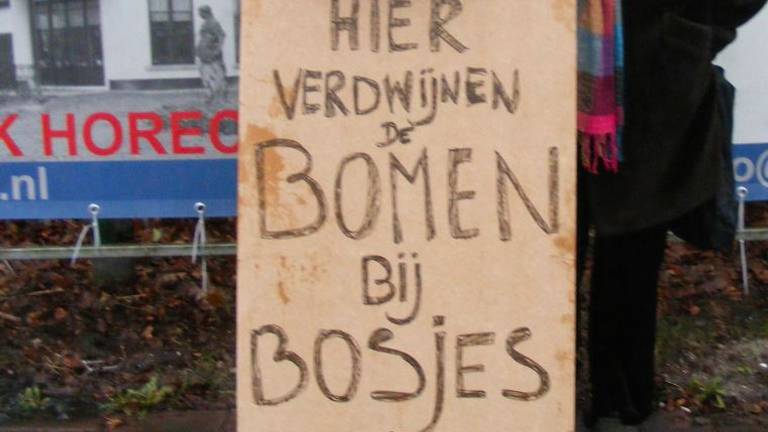 HIER
VERDWIJNEN
DE
BOMEN
BIJ
BOSJES
K HOREC
.nl